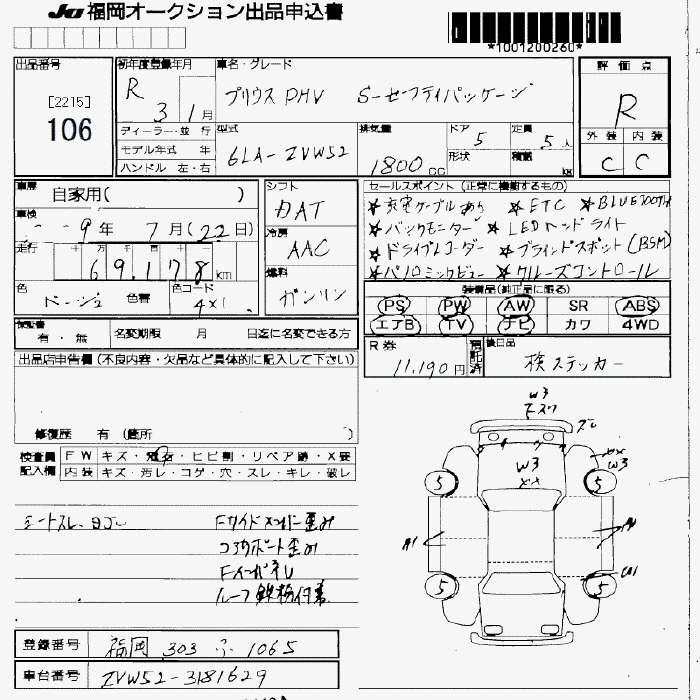 JU 福岡オークション出品申込書
*1001200260*
出品番号 初年度登録年月 車名・グレード 評価点
[2215]
106
R 3 1月
プリウス PHV S-セーフティパッケージ
R
ディーラー・並行 型式 排気量 ドア 5 定員 5人 外装 内装
モデル年式 年 6LA-ZVW52 1800cc 形状 積載 kg C C
ハンドル 左・右
車歴 自家用( ) シフト セールスポイント (正常に機能するもの)
DAT
☆充電ケーブルあり ☆ETC ☆BLUETOOTH
車検 9年 7月(22日) 冷房
☆バックモニター ☆LEDヘッドライト
AAC
走行 69,178km
☆ドライブレコーダー ☆ブラインドスポット(BSM)
燃料
☆パノラミックビュー ☆クルーズコントロール
色 ベージュ 色替 色コード 4X1 ガソリン
装備品(純正品に限る)
PS PW AW SR ABS
エアB TV ナビ カワ 4WD
保証書 有・無 名変期限 月 日迄に名変できる方
R券 11,190円 預託済 後日品 検ステッカー
出品店申告欄 (不良内容・欠品など具体的に記入して下さい)
修復歴 有 (箇所 )
検査員 FW キズ・飛石・ヒビ割・リペア跡・X要
記入欄 内装 キズ・汚レ・コゲ・穴・スレ・キレ・破レ
W3
W3
W3
5 5
A1
5 5
シートスレ、ヨゴレ Fサイドメンバー歪み
コアサポート歪み
Fインパネル
ルーフ鉄粉付着
登録番号 福岡 303 ふ 1065
車台番号 ZVW52-3181629